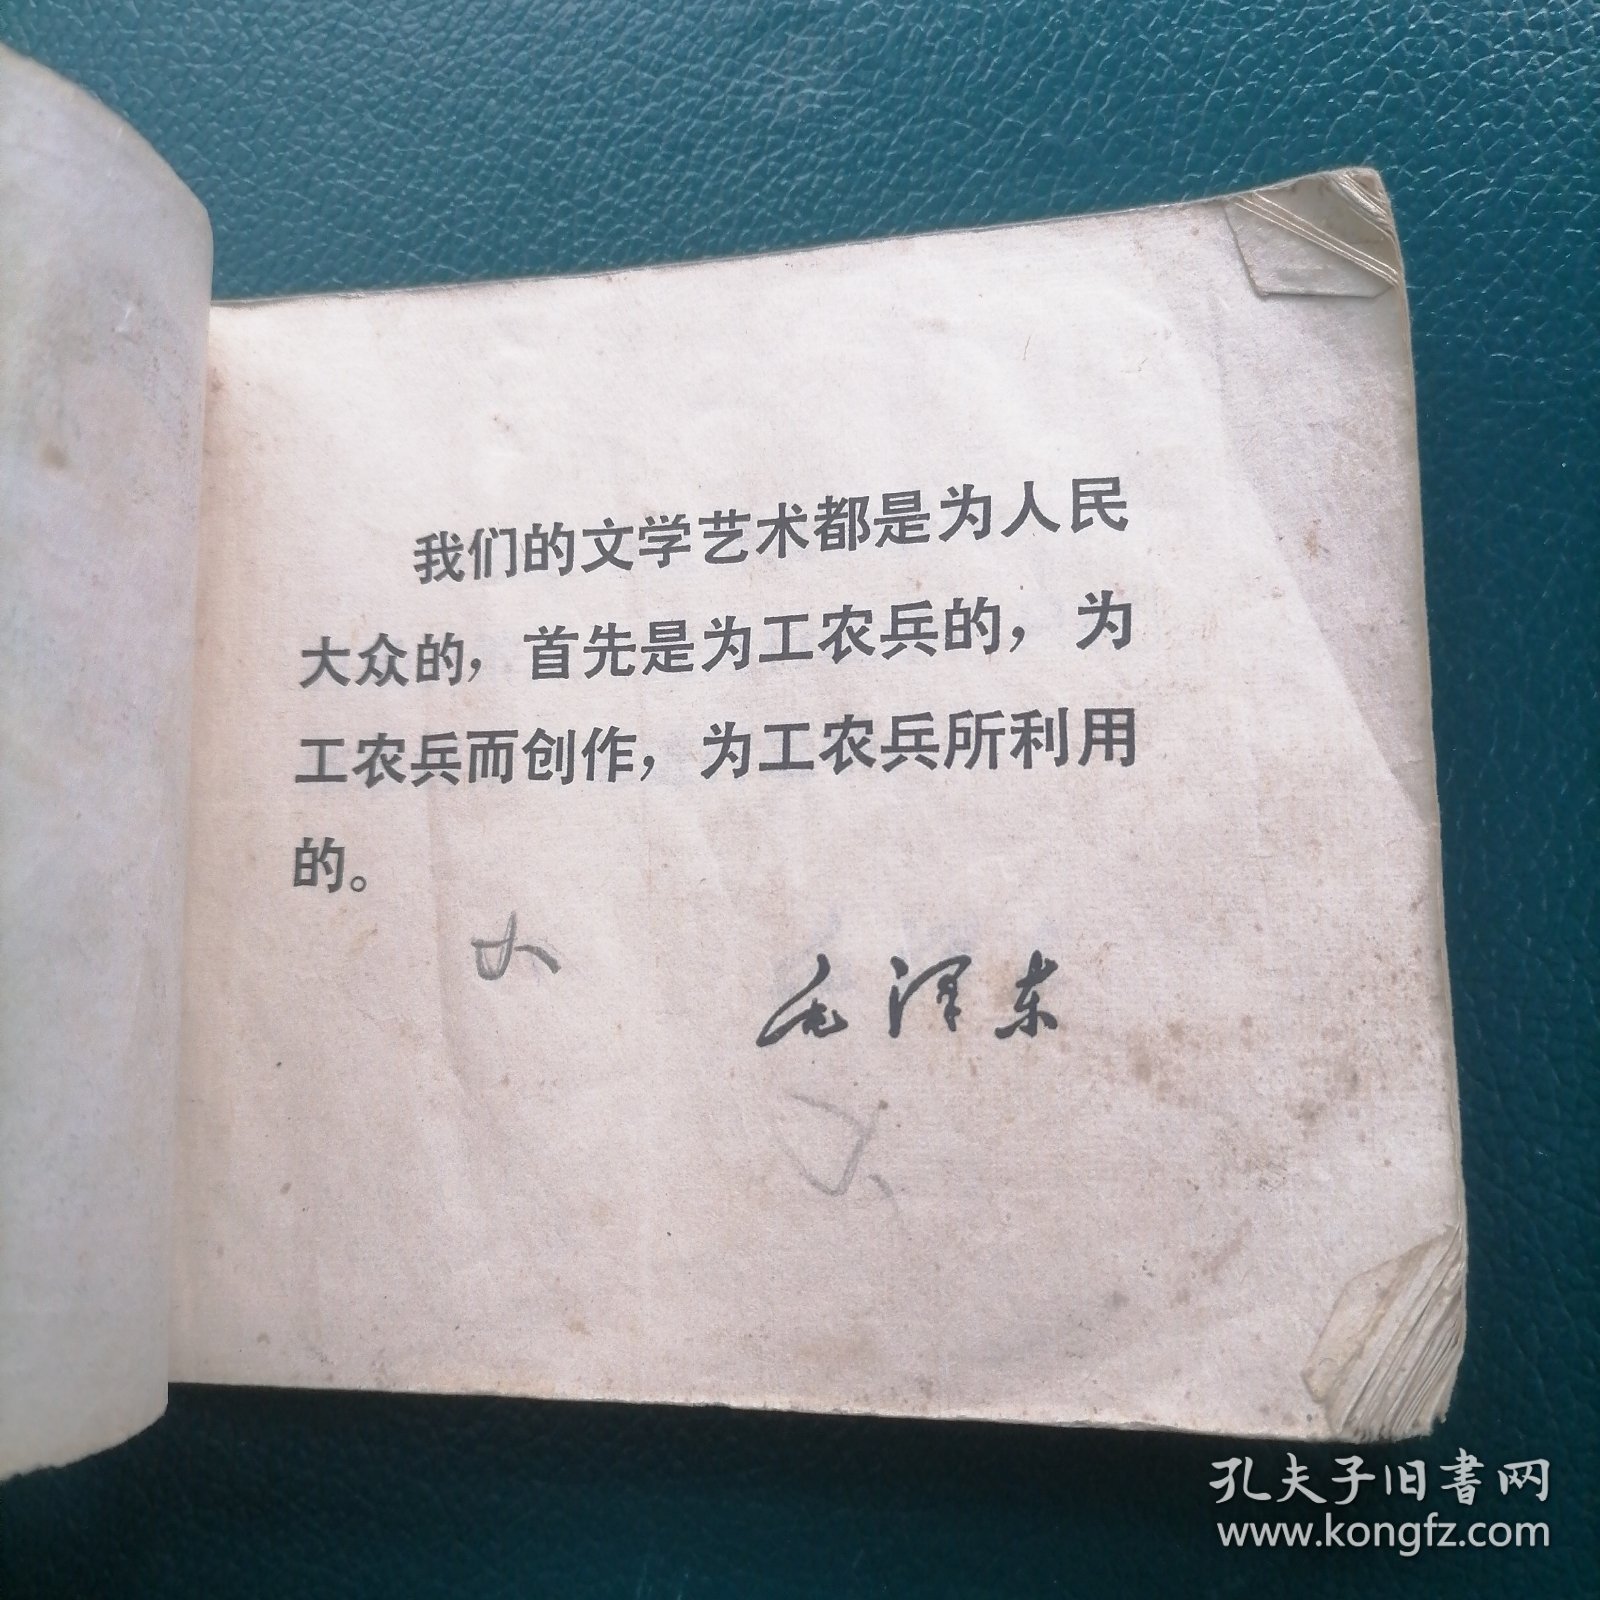 我们的文学艺术都是为人民
大众的，首先是为工农兵的，为
工农兵而创作，为工农兵所利用
的。
毛泽东
孔夫子旧书网
www.kongfz.com